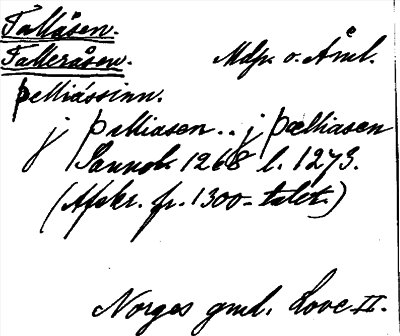 Tallåsen.
Talleråsen. Mdp. o. Åml.
þelliássinn.
j þalliasen .. j þælliasen
Sannob. 1268 l. 1273.
(Afskr. fr. 1300-talet.)
Norges gml. Love II.